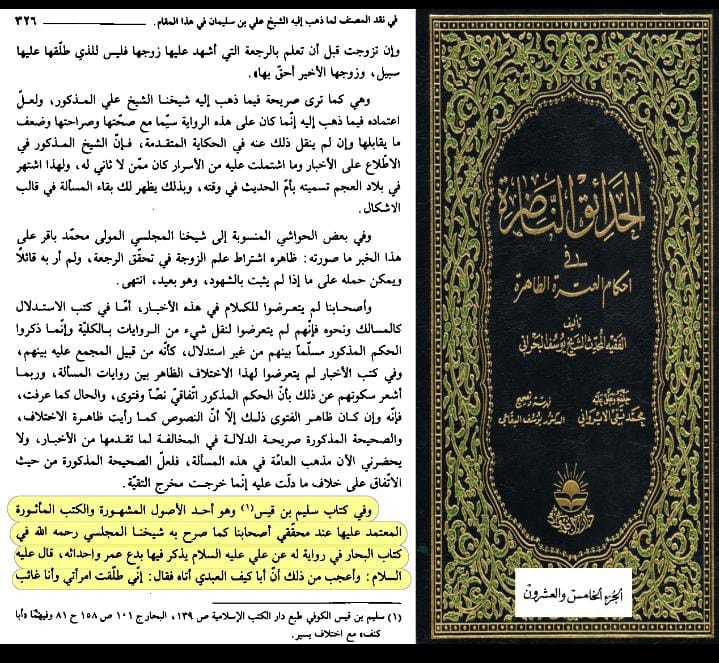 في نقد المصنف لما ذهب إليه الشيخ علي بن سليمان في هذا المقام. ٣٢٦
وإن تزوجت قبل أن تعلم بالرجعة التي أشهد عليها زوجها فليس للذي طلّقها عليها
سبيل، وزوجها الأخير أحقّ بها».
وهي كما ترى صريحة فيما ذهب إليه شيخنا الشيخ علي المذكور، ولعلّ
اعتماده فيما ذهب إليه إنّما كان على هذه الرواية سيّما مع صحّتها وصراحتها وضعف
ما يقابلها وإن لم ينقل ذلك عنه في الحكاية المتقدمة، فإنّ الشيخ المذكور في
الاطّلاع على الأخبار وما اشتملت عليه من الأسرار كان ممّن لا ثاني له، ولهذا اشتهر
في بلاد العجم تسميته بأمّ الحديث في وقته، وبذلك يظهر لك بقاء المسألة في قالب
الاشكال.
وفي بعض الحواشي المنسوبة إلى شيخنا المجلسي المولى محمّد باقر على
هذا الخبر ما صورته: ظاهره اشتراط علم الزوجة في تحقّق الرجعة، ولم أر به قائلًا
ويمكن حمله على ما إذا لم يثبت بالشهود، وهو بعيد، انتهى.
وأصحابنا لم يتعرضوا للكلام في هذه الأخبار، أمّا في كتب الاستدلال
كالمسالك ونحوه فإنّهم لم يتعرضوا لنقل شيء من الروايات بالكليّة وإنّما ذكروا
الحكم المذكور مسلّماً بينهم من غير استدلال، كأنه من قبيل المجمع عليه بينهم،
وفي كتب الأخبار لم يتعرضوا لهذا الاختلاف الظاهر بين روايات المسألة، وربما
أشعر سكوتهم عن ذلك بأنّ الحكم المذكور اتفاقيّ نصّاً وفتوى، والحال كما عرفت،
فإنّه وإن كان ظاهر الفتوى ذلك إلاّ أنّ النصوص كما رأيت ظاهرة الاختلاف،
والصحيحة المذكورة صريحة الدلالة في المخالفة لما تقدمها من الأخبار، ولا
يحضرني الآن مذهب العامّة في هذه المسألة، فلعلّ الصحيحة المذكورة من حيث
الاتّفاق على خلاف ما دلّت عليه إنّما خرجت مخرج التقيّة.
وفي كتاب سليم بن قيس(١) وهو أحد الأصول المشهورة والكتب المأثورة
المعتمد عليها عند محقّقي أصحابنا كما صرح به شيخنا المجلسي رحمه الله في
كتاب البحار في رواية له عن علي عليه السلام يذكر فيها بدع عمر وإحداثه، قال عليه
السلام: وأعجب من ذلك أنّ أبا كيف العبدي أتاه فقال: إنّي طلّقت امرأتي وأنا غائب
(١) سليم بن قيس الكوفي طبع دار الكتب الإسلامية ص ١٣٩، البحار ج ١٠١ ص ١٥٨ ح ٨١ وفيهما «أبا
كنف» مع اختلاف يسير.
الحدائق الناضرة
في
احكام العترة الطاهرة
تأليف
الفقيه المحدث الشيخ يوسف البحراني
حققه وعلق عليه
محمد تقي الايرواني
فهرسه وصححه
الدكتور يوسف البقاعي
دار الأضواء
الجزء الخامس والعشرون